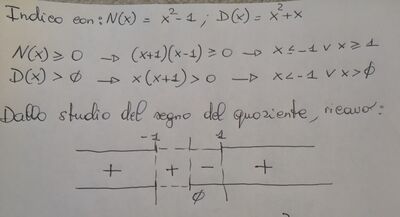 Indico con: N(x) = x²-1 ; D(x) = x²+x
N(x) ≥ 0 → (x+1)(x-1) ≥ 0 → x ≤ -1 ∨ x ≥ 1
D(x) > Ø → x(x+1) > 0 → x < -1 ∨ x > Ø
Dallo studio del segno del quoziente, ricavo:
-1 1
+ + - +
Ø